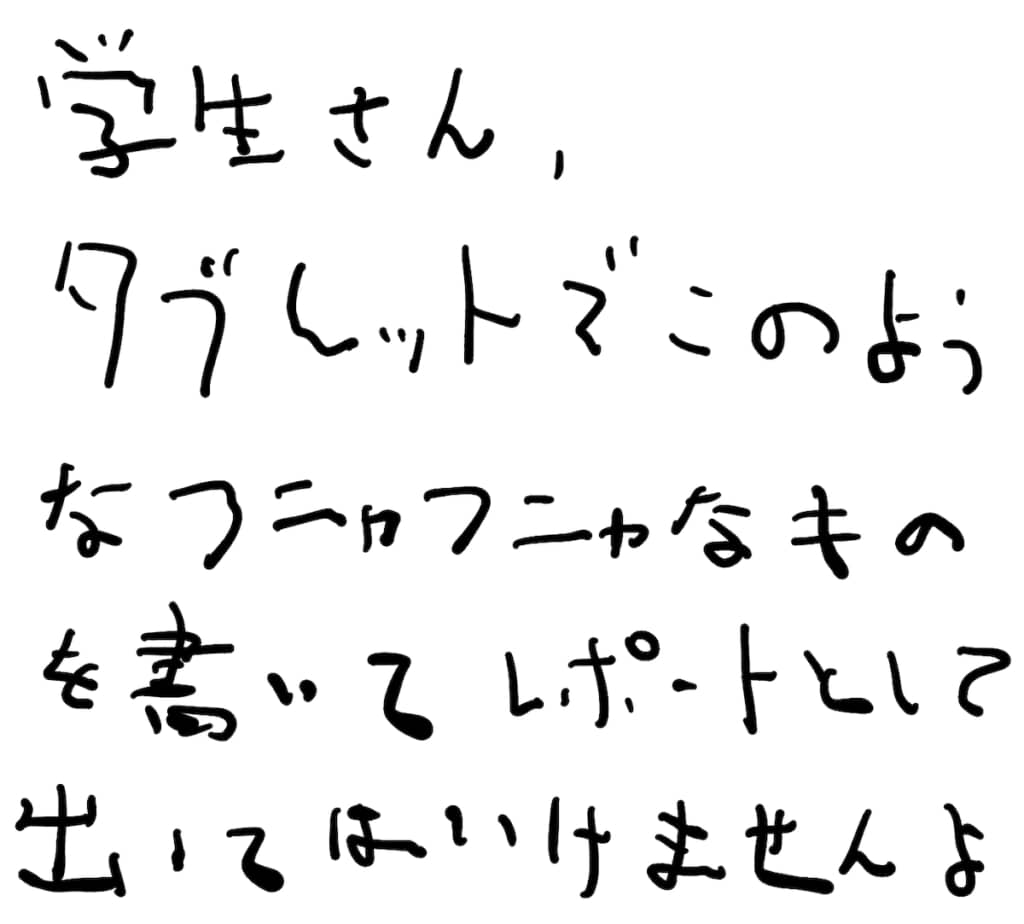 学生さん,
タブレットでこのよう
なフニャフニャなもの
を書いてレポートとして
出してはいけませんよ